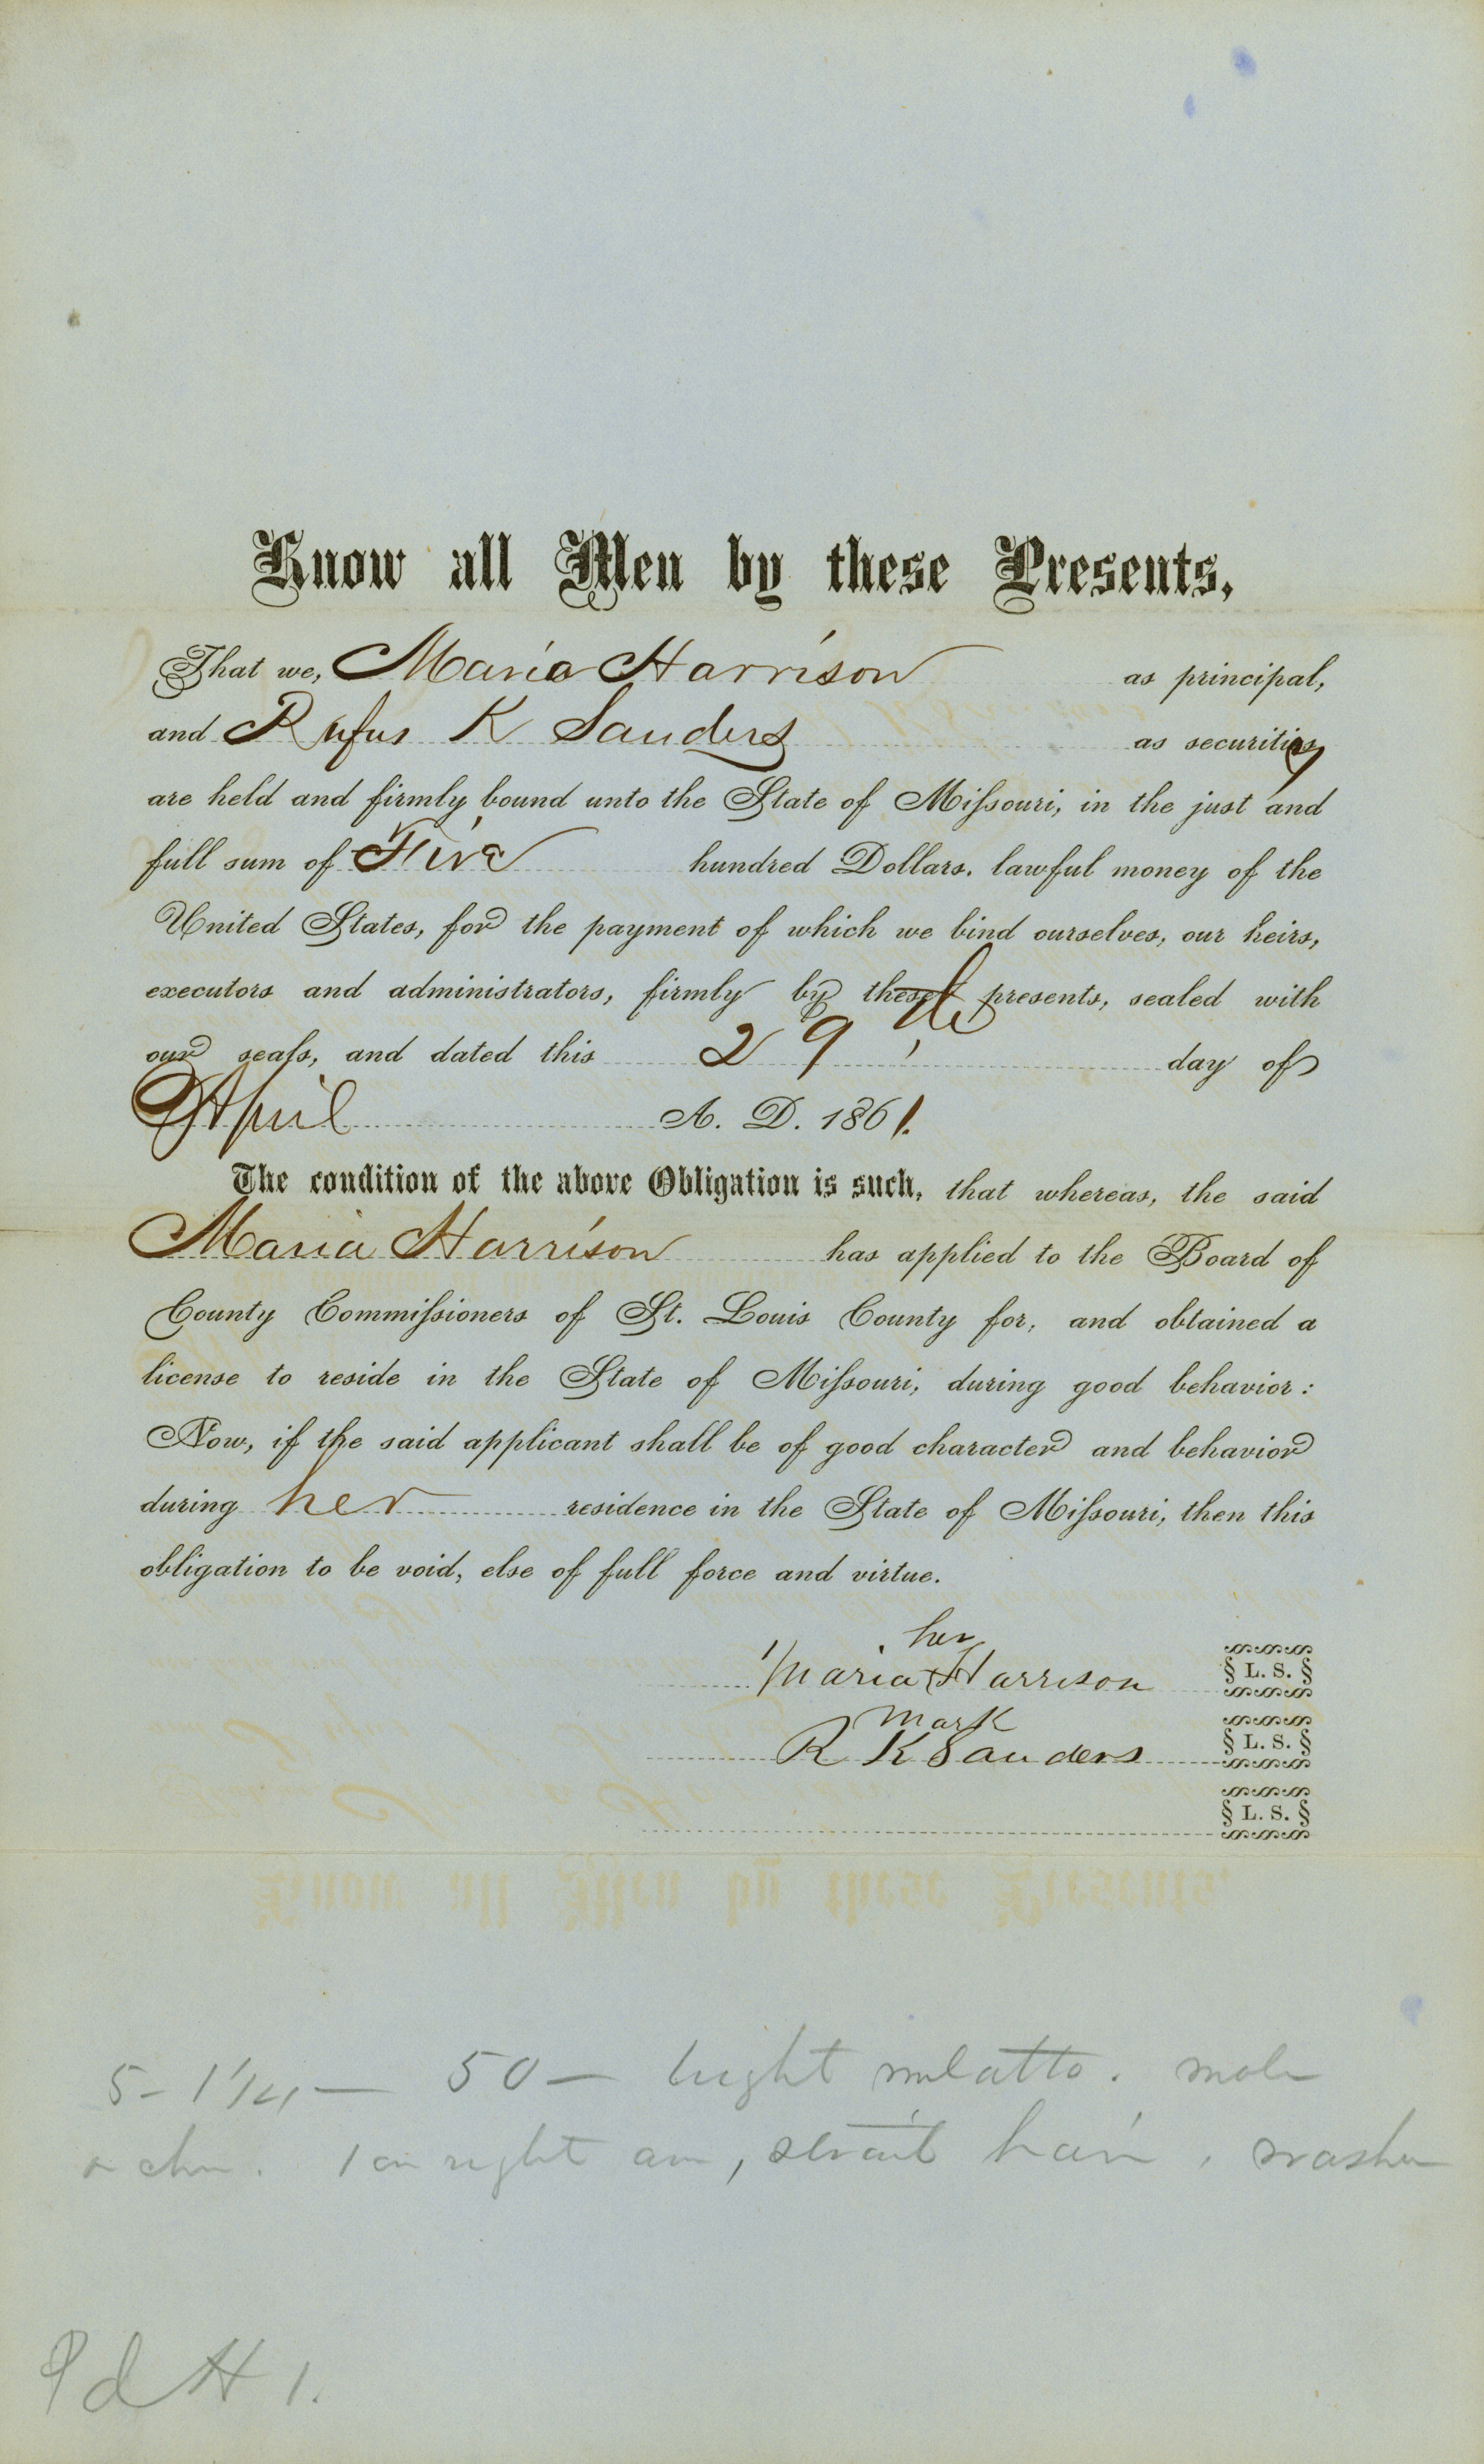 Know all Men by these Presents,
That we, Maria Harrison as principal,
and Rufus K Sanders as security
are held and firmly bound unto the State of Miſsouri, in the just and
full sum of Five hundred Dollars, lawful money of the
United States, for the payment of which we bind ourselves, our heirs,
executors and administrators, firmly by these presents, sealed with
our seals, and dated this 29th day of
April A. D. 1861.
The condition of the above Obligation is such, that whereas, the said
Maria Harrison has applied to the Board of
County Commiſsioners of St. Louis County for, and obtained a
license to reside in the State of Miſsouri, during good behavior:
Now, if the said applicant shall be of good character and behavior
during her residence in the State of Miſsouri, then this
obligation to be void, else of full force and virtue.
her
Maria + Harrison § L. S. §
mark
R K Sanders § L. S. §
§ L. S. §
5-1 1/4 — 50 — bright mulatto. mole
chin. 1 on right arm, strait hair, washer
Pd H 1.